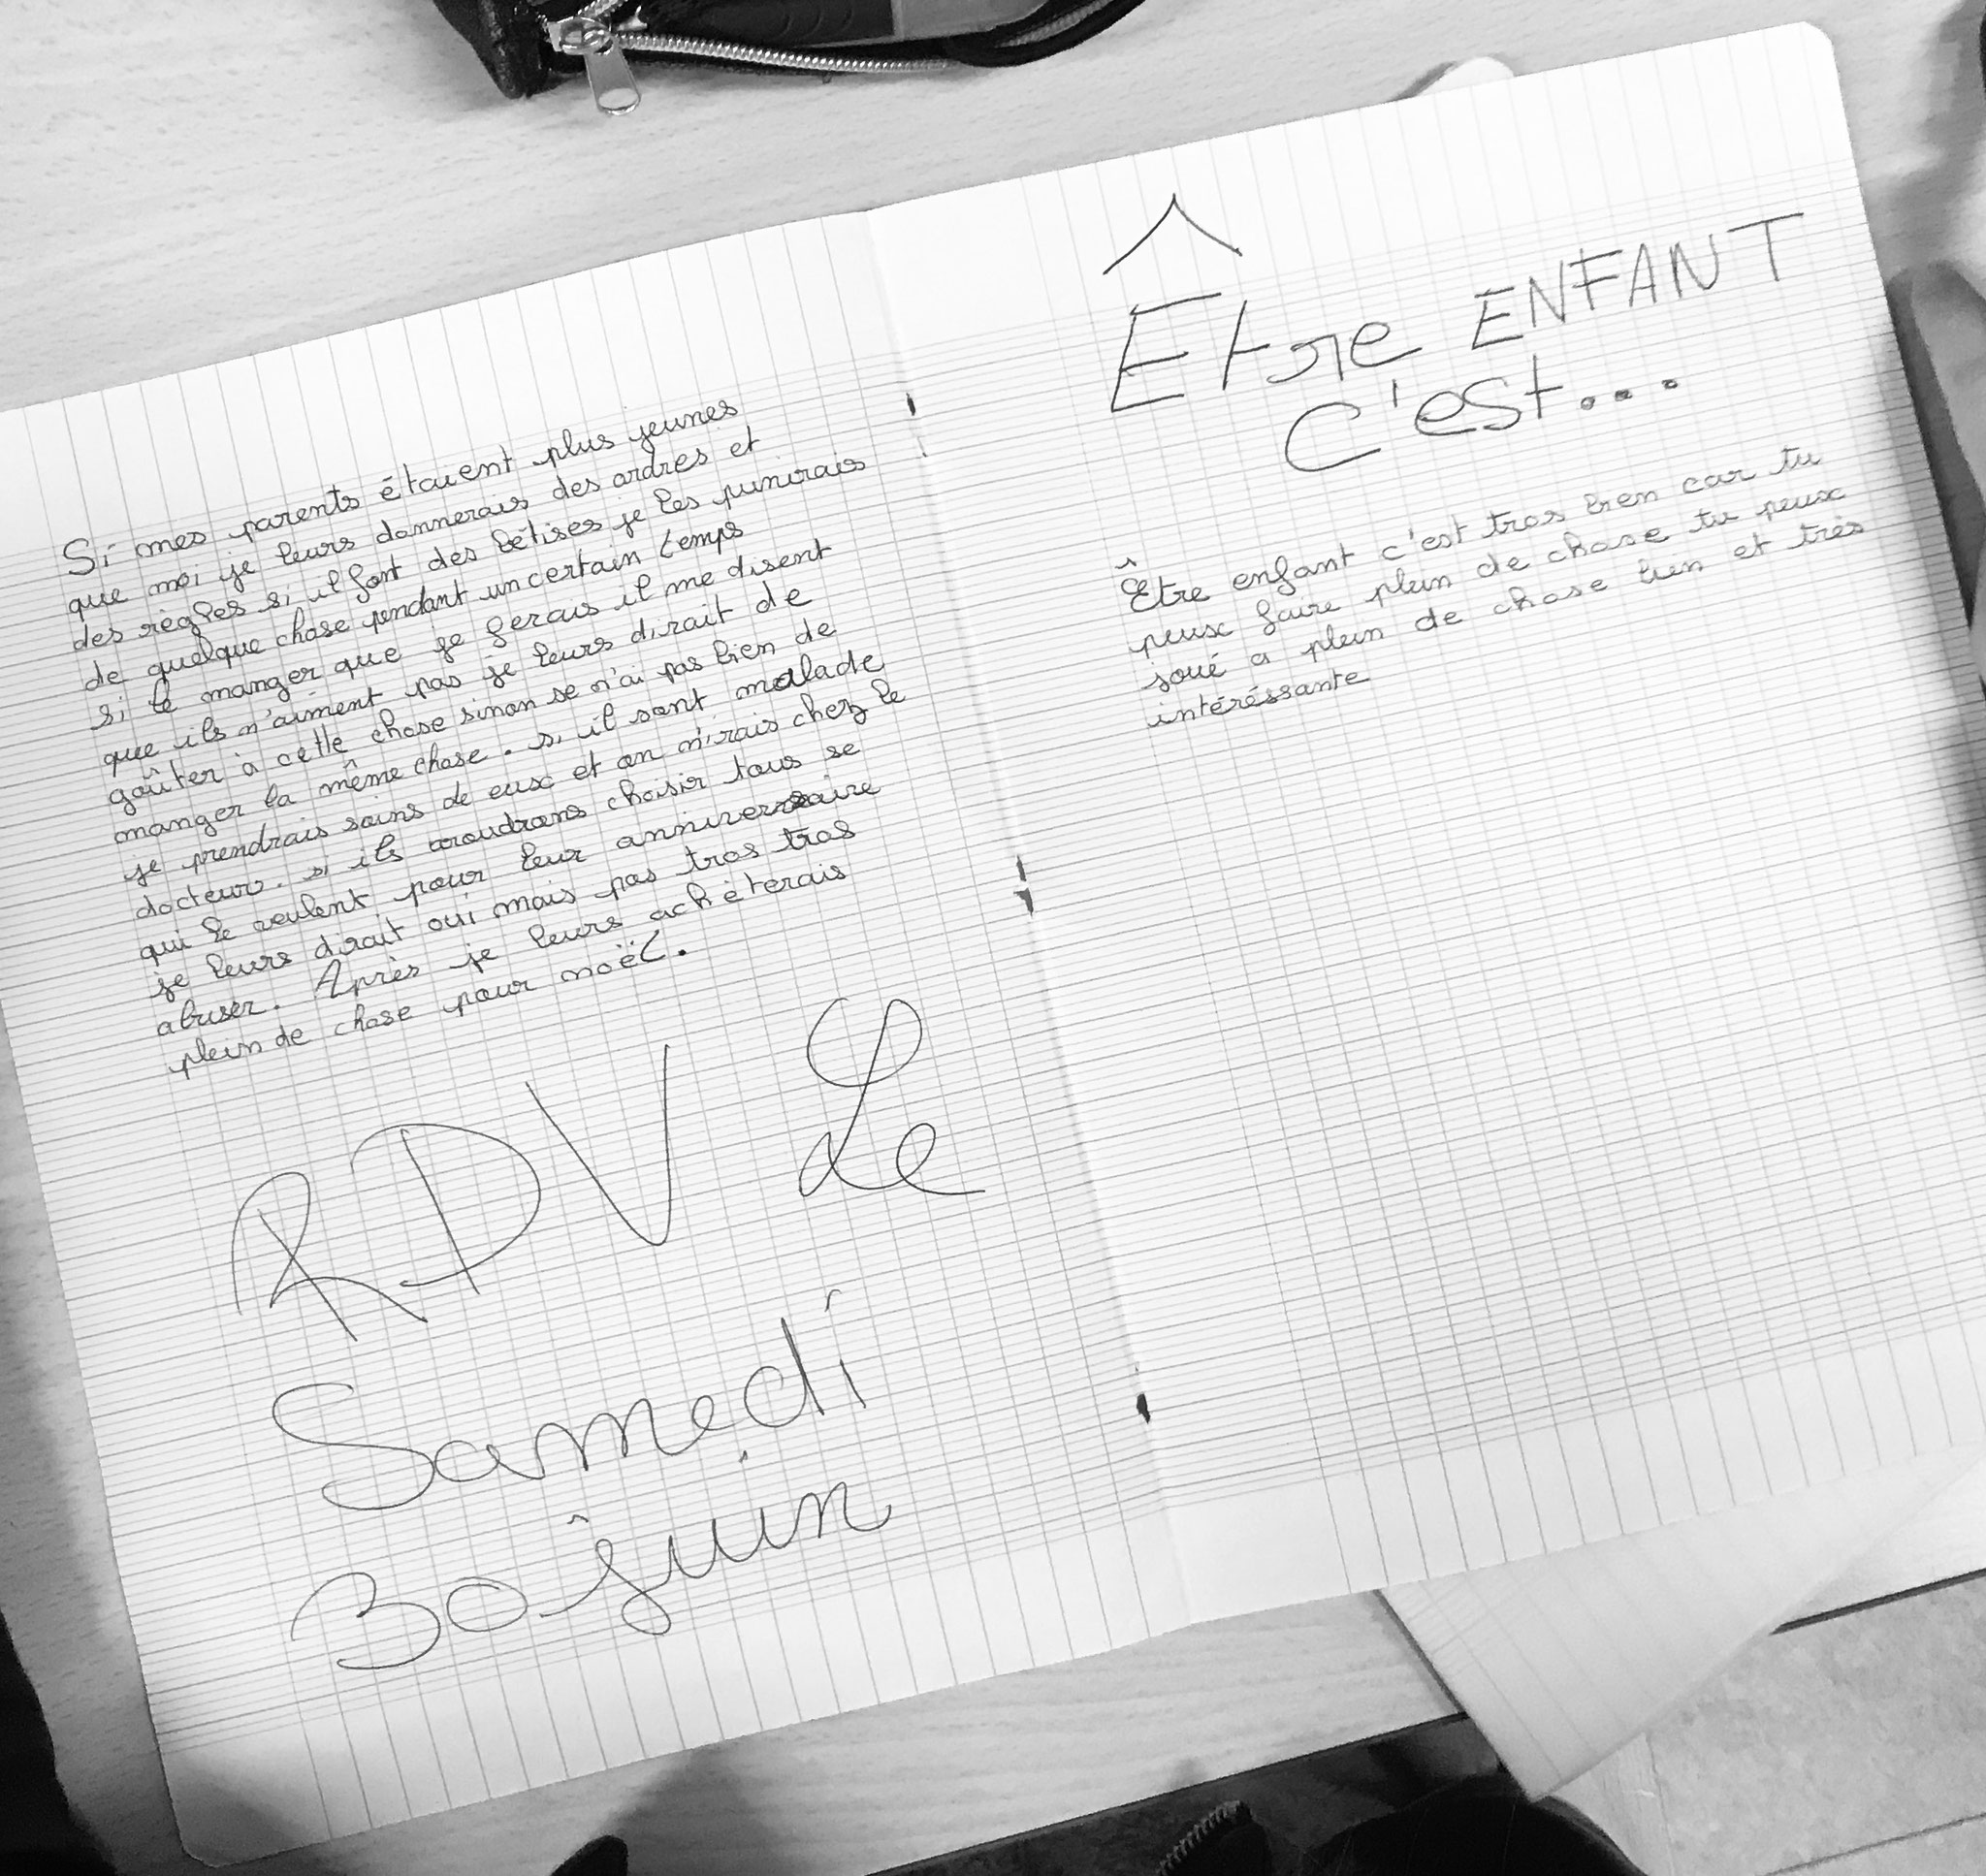 Si mes parents étaient plus jeunes
que moi je leurs donnerais des ordres et
des règles si il font des bêtises je les punirais
de quelque chose pendant un certain temps
si le manger que je ferais il me disent
que ils n'aiment pas je leurs dirait de
goûter à cette chose sinon se n'ai pas bien de
manger la même chose. si il sont malade
je prendrais soins de eux et on n'irais chez le
docteur. si ils voudrons choisir tous se
qui le veulent pour leur anniversaire
je leurs dirait oui mais pas tros tros
abuser. Après je leurs achèterais
plein de chose pour noël.
RDV Le
Samedi
30 juin
Être ENFANT
C'est...
Être enfant c'est tros bien car tu
peux faire plein de chose tu peux
joué a plein de chose bien et très
intéréssante